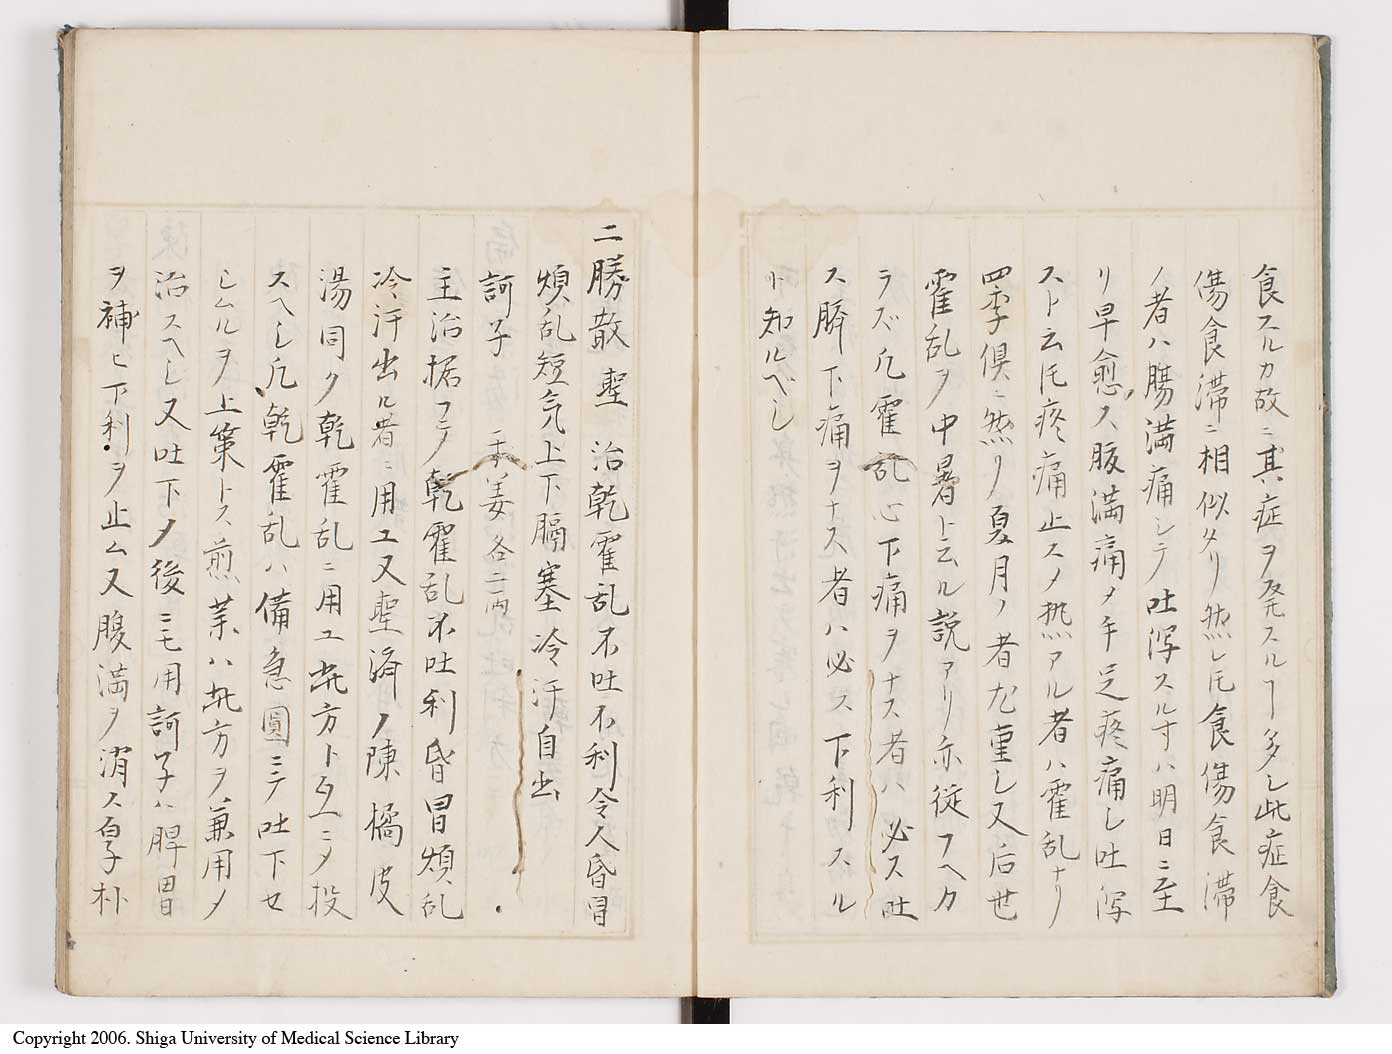 食スルカ故ニ其症ヲ発スルヿ多シ此症食
傷食滞ニ相似タリ然レ𪜈食傷食滞
ノ者ハ腸満痛シテ吐瀉スル寸ハ明日ニ至
リ早愈ス腹満痛メ手足疼痛シ吐瀉
スト云𪜈疼痛止スメ熱アル者ハ霍乱ナリ
四季倶ニ然リ夏月ノ者尤重シ又后世
霍乱ヲ中暑ト云ル説アリ亦従フヘカ
ラズ凡霍乱心下痛ヲナス者ハ必ス吐
ス臍下痛ヲナス者ハ必ス下利スル
ト知ルベシ
二勝散 聖 治乾霍乱不吐不利令人昏冒
煩乱短気上下膈塞冷汗自出
訶子 干姜 各二両
主治据フラ乾霍乱不吐利昏冒煩乱
冷汗出ル者ニ用ユ又聖済ノ陳橘皮
湯同ク乾霍乱ニ用ユ此方ト互ニメ投
スヘシ凡乾霍乱ハ備急圓ニテ吐下セ
シムルヲ上策トス煎薬ハ此方ヲ兼用メ
治スヘシ又吐下メ後ニモ用訶子ハ脾胃
ヲ補ヒ下利ヲ止ム又腹満ヲ消ス厚朴
Copyright 2006. Shiga University of Medical Science Library